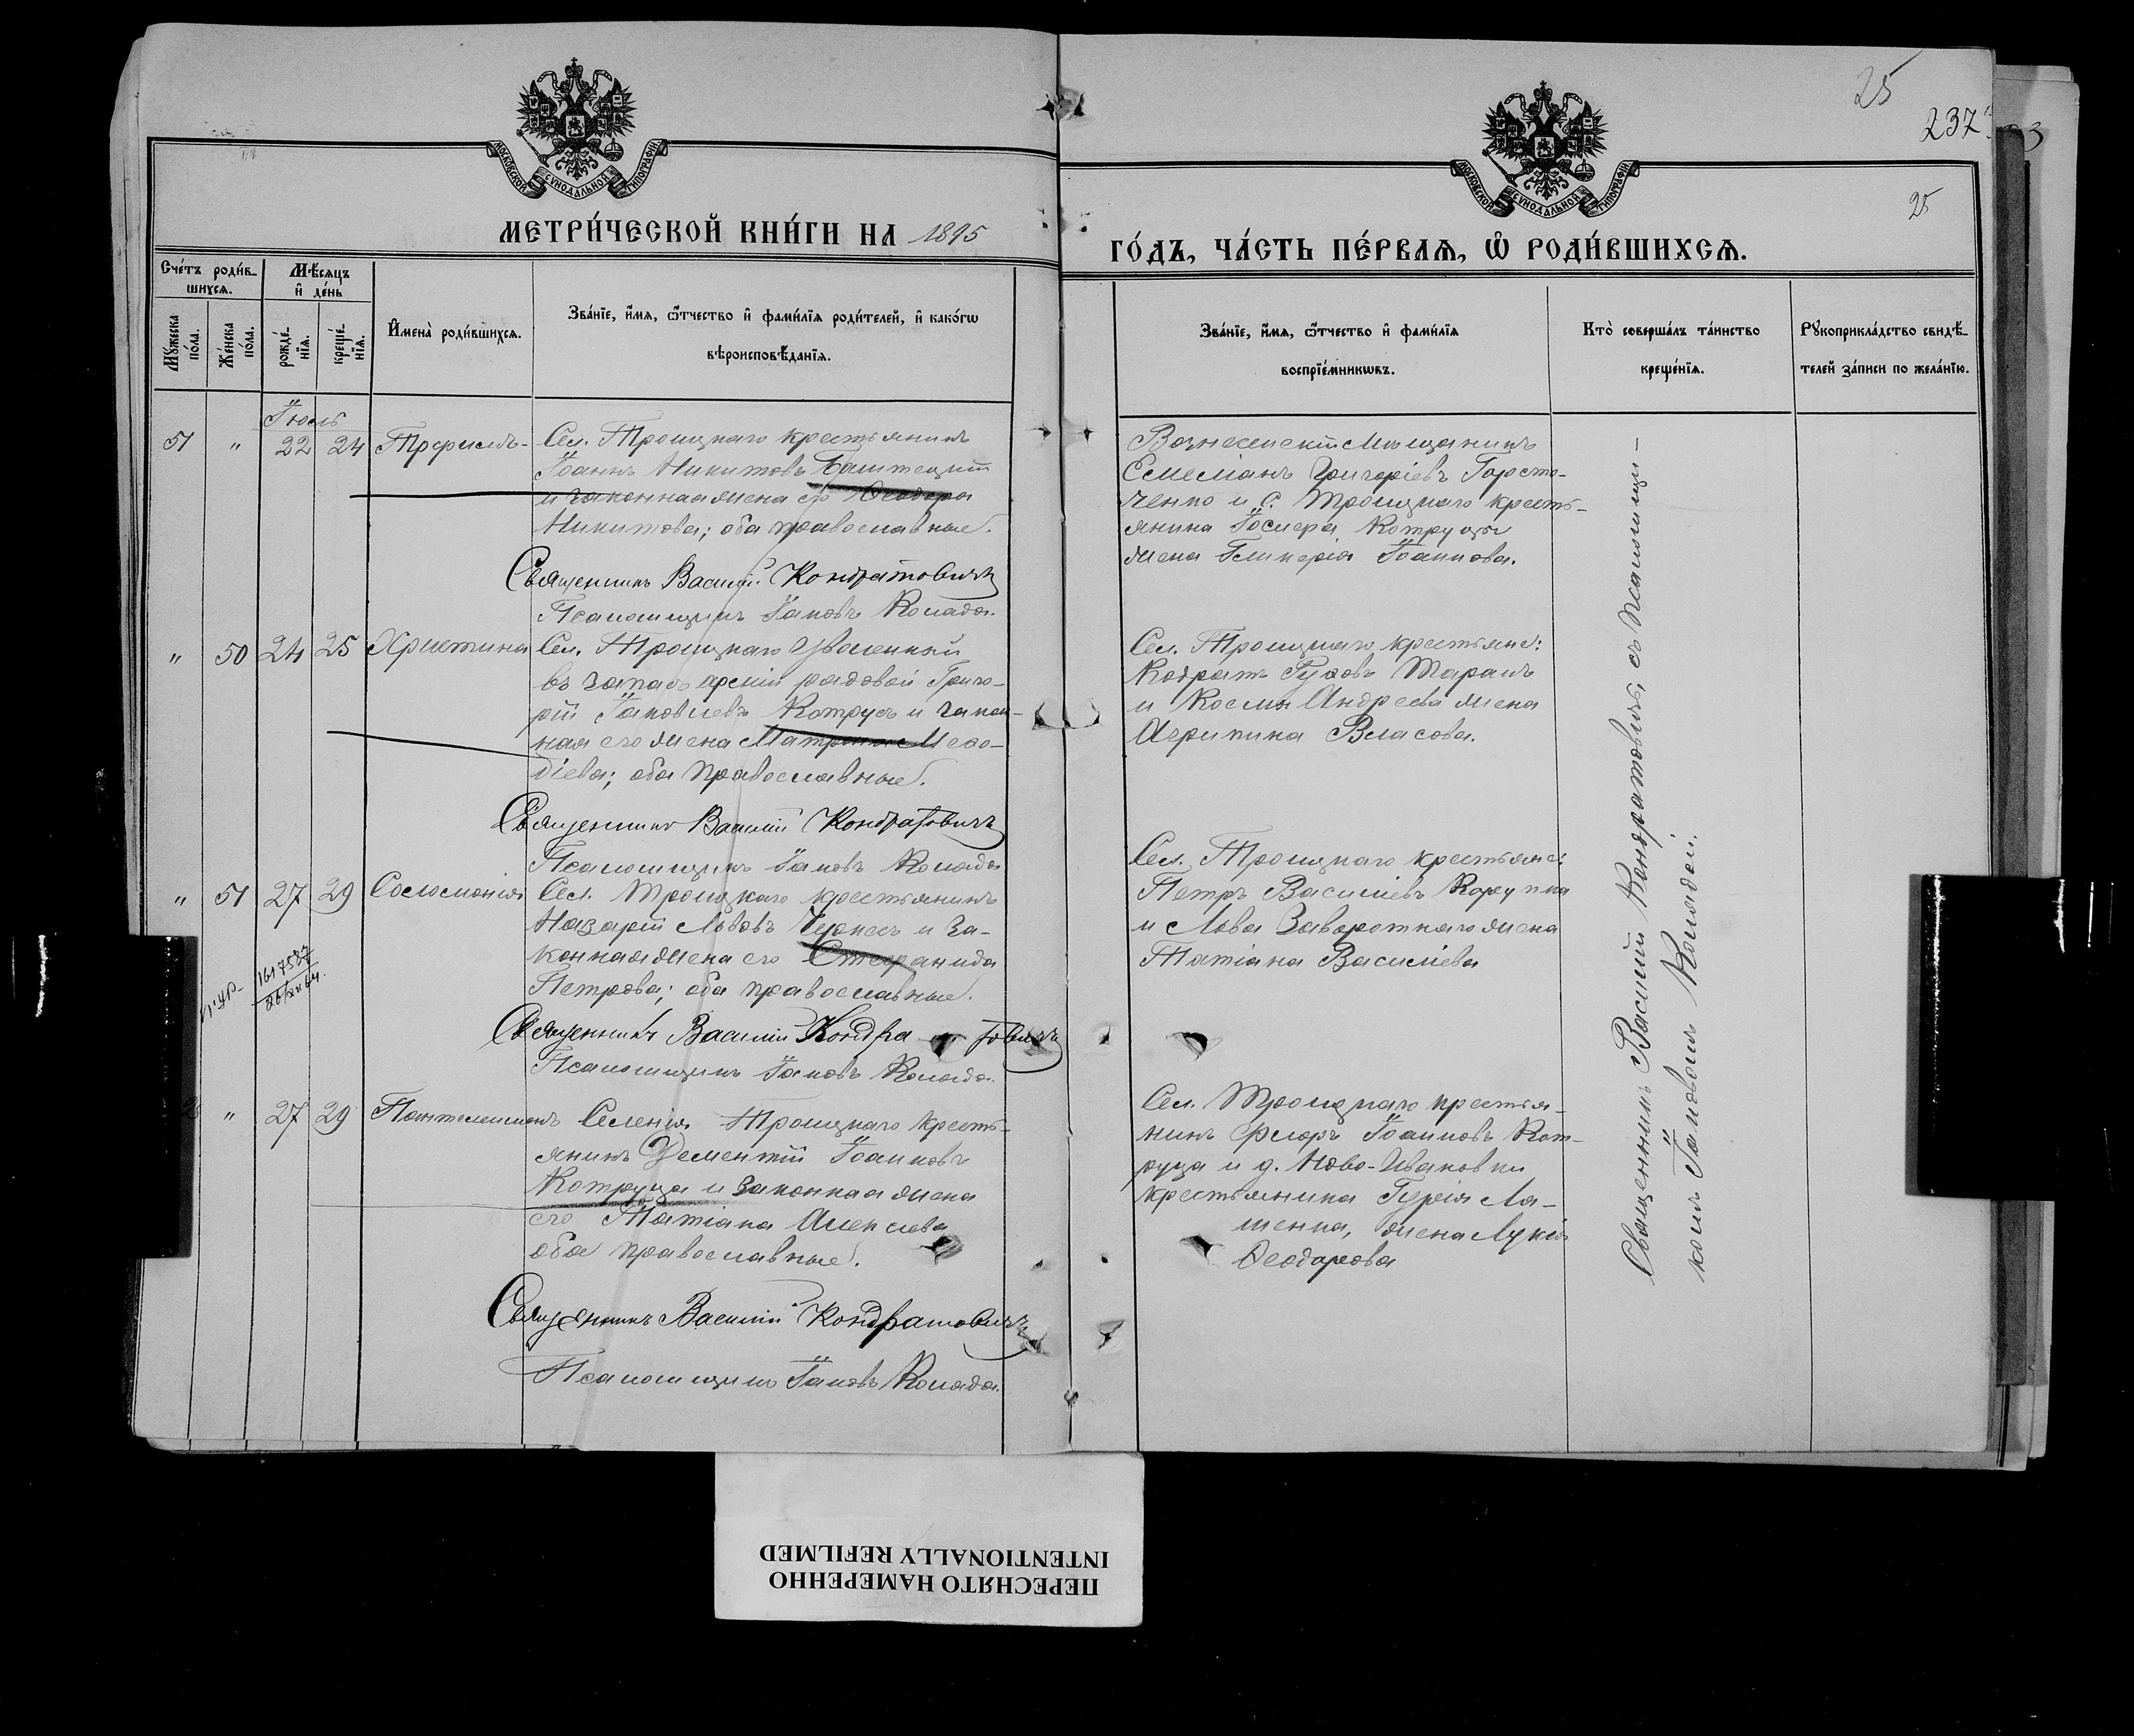 25
237
25
МОСКОВСКОЙ СУНОДАЛЬНОЙ ТИПОГРАФІИ
МОСКОВСКОЙ СУНОДАЛЬНОЙ ТИПОГРАФІИ
МЕТРИ́ЧЕСКОЙ КНИ́ГИ НА 1895
ГО́ДЪ, ЧА́СТЬ ПЕ́РВАѦ, Ѡ҆ РОДИ́ВШИХСѦ.
Сче́тъ роди́в-
шихсѧ.
Мѣ́сѧцъ
и҆ де́нь
Мꙋ́жеска
по́ла.
Же́нска
по́ла.
рожде́-
нїѧ.
креще́-
нїѧ.
И҆мена̀ роди́вшихсѧ.
Зва́нїе, и҆́мѧ, ѻ҆́тчество и҆ фами́лїѧ роди́телей, и҆ како́гѡ
вѣроисповѣ́данїѧ.
Зва́нїе, и҆́мѧ, ѻ҆́тчество и҆ фами́лїѧ
воспрїе́мникѡвъ.
Кто̀ соверша́лъ та́инство
креще́нїѧ.
Рꙋкоприкла́дство свидѣ́-
телей за́писи по жела́нїю.
Іюль
51 " 22 24 Трофимъ- Сел. Троицкаго крестьянинъ
Іоаннъ Никитовъ Баштецкій
и законная жена его Ѳеодора
Никитова; оба православные.
Священникъ Василій Кондратовичъ
Псаломщикъ Іаковъ Коляда.
Вознесенскій Мѣщанинъ
Емеліанъ Григоріевъ Горсто-
ченко и с. Троицкаго кресть-
янина Іосифа Котруцы
жена Гликерія Іоаннова.
" 50 24 25 Христина Сел. Троицкаго уволенный
въ запасъ арміи рядовой Григо-
рій Іаковлевъ Котруцъ и закон-
ная его жена Матрона Меѳо-
діева; оба православные.
Священникъ Василій Кондратовичъ
Псаломщикъ Іаковъ Коляда
Сел. Троицкаго крестьяне:
Кодратъ Таранъ
и Космы Андреева жена
Агрипина Власова.
" 51 27 29 Соломонія Сел. Троицкаго крестьянинъ
Назарій Львовъ Чернесъ и За-
конная жена его Стефанида
Петрова; оба православные.
Священникъ Василій Кондратовичъ
Псаломщикъ Іаковъ Коляда.
Сел. Троицкаго крестьяне:
Петръ Василіевъ Корсунка
и Льва Заворотнаго жена
Татіана Василіева
1617587
" 27 29 Пантелеимонъ Селенія Троицкаго кресть-
янинъ Дементій Іоанновъ
Котруца и Законная жена
его Татіана Алексіева
обое православные.
Священникъ Василій Кондратовичъ
Псаломщикъ Іаковъ Коляда.
Сел. Троицкаго крестья-
нинъ Флоръ Іоанновъ Кот-
руца и д. Ново-Ивановки
крестьянина Гурія Ля-
шенка, жена Лукія
Ѳеодорова
Священникъ Василій Кондратовичъ, съ псаломщи-
комъ Іаковомъ Колядой.
ПЕРЕСНЯТО НАМЕРЕННО
INTENTIONALLY REFILMED